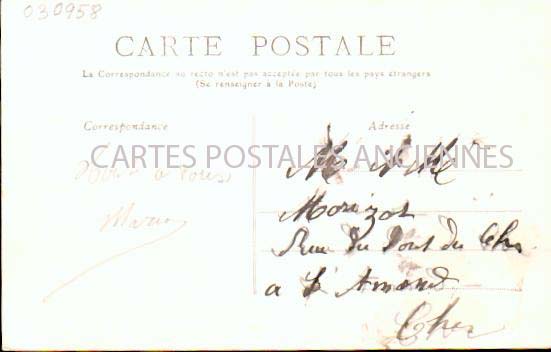 030958
CARTE POSTALE
La Correspondance au recto n'est pas acceptée par tous les pays étrangers
(Se renseigner à la Poste)
Correspondance
Adresse
CARTES POSTALES ANCIENNES
Morizot
Rue du Pont du Cher
a St Amand
Cher